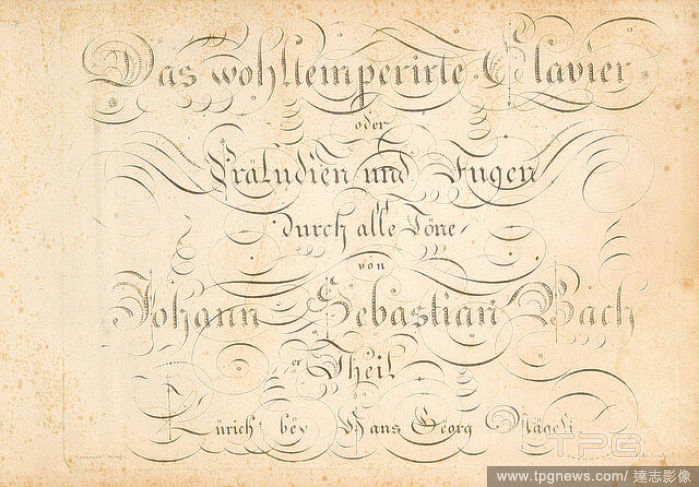 Das wohltemperirte Clavier
oder
Präludien und Fugen
durch alle Töne
von
Johann Sebastian Bach
er Theil
Zürich bëy Hans Georg Nägeli
TPG
www.tpgnews.com / 達志影像